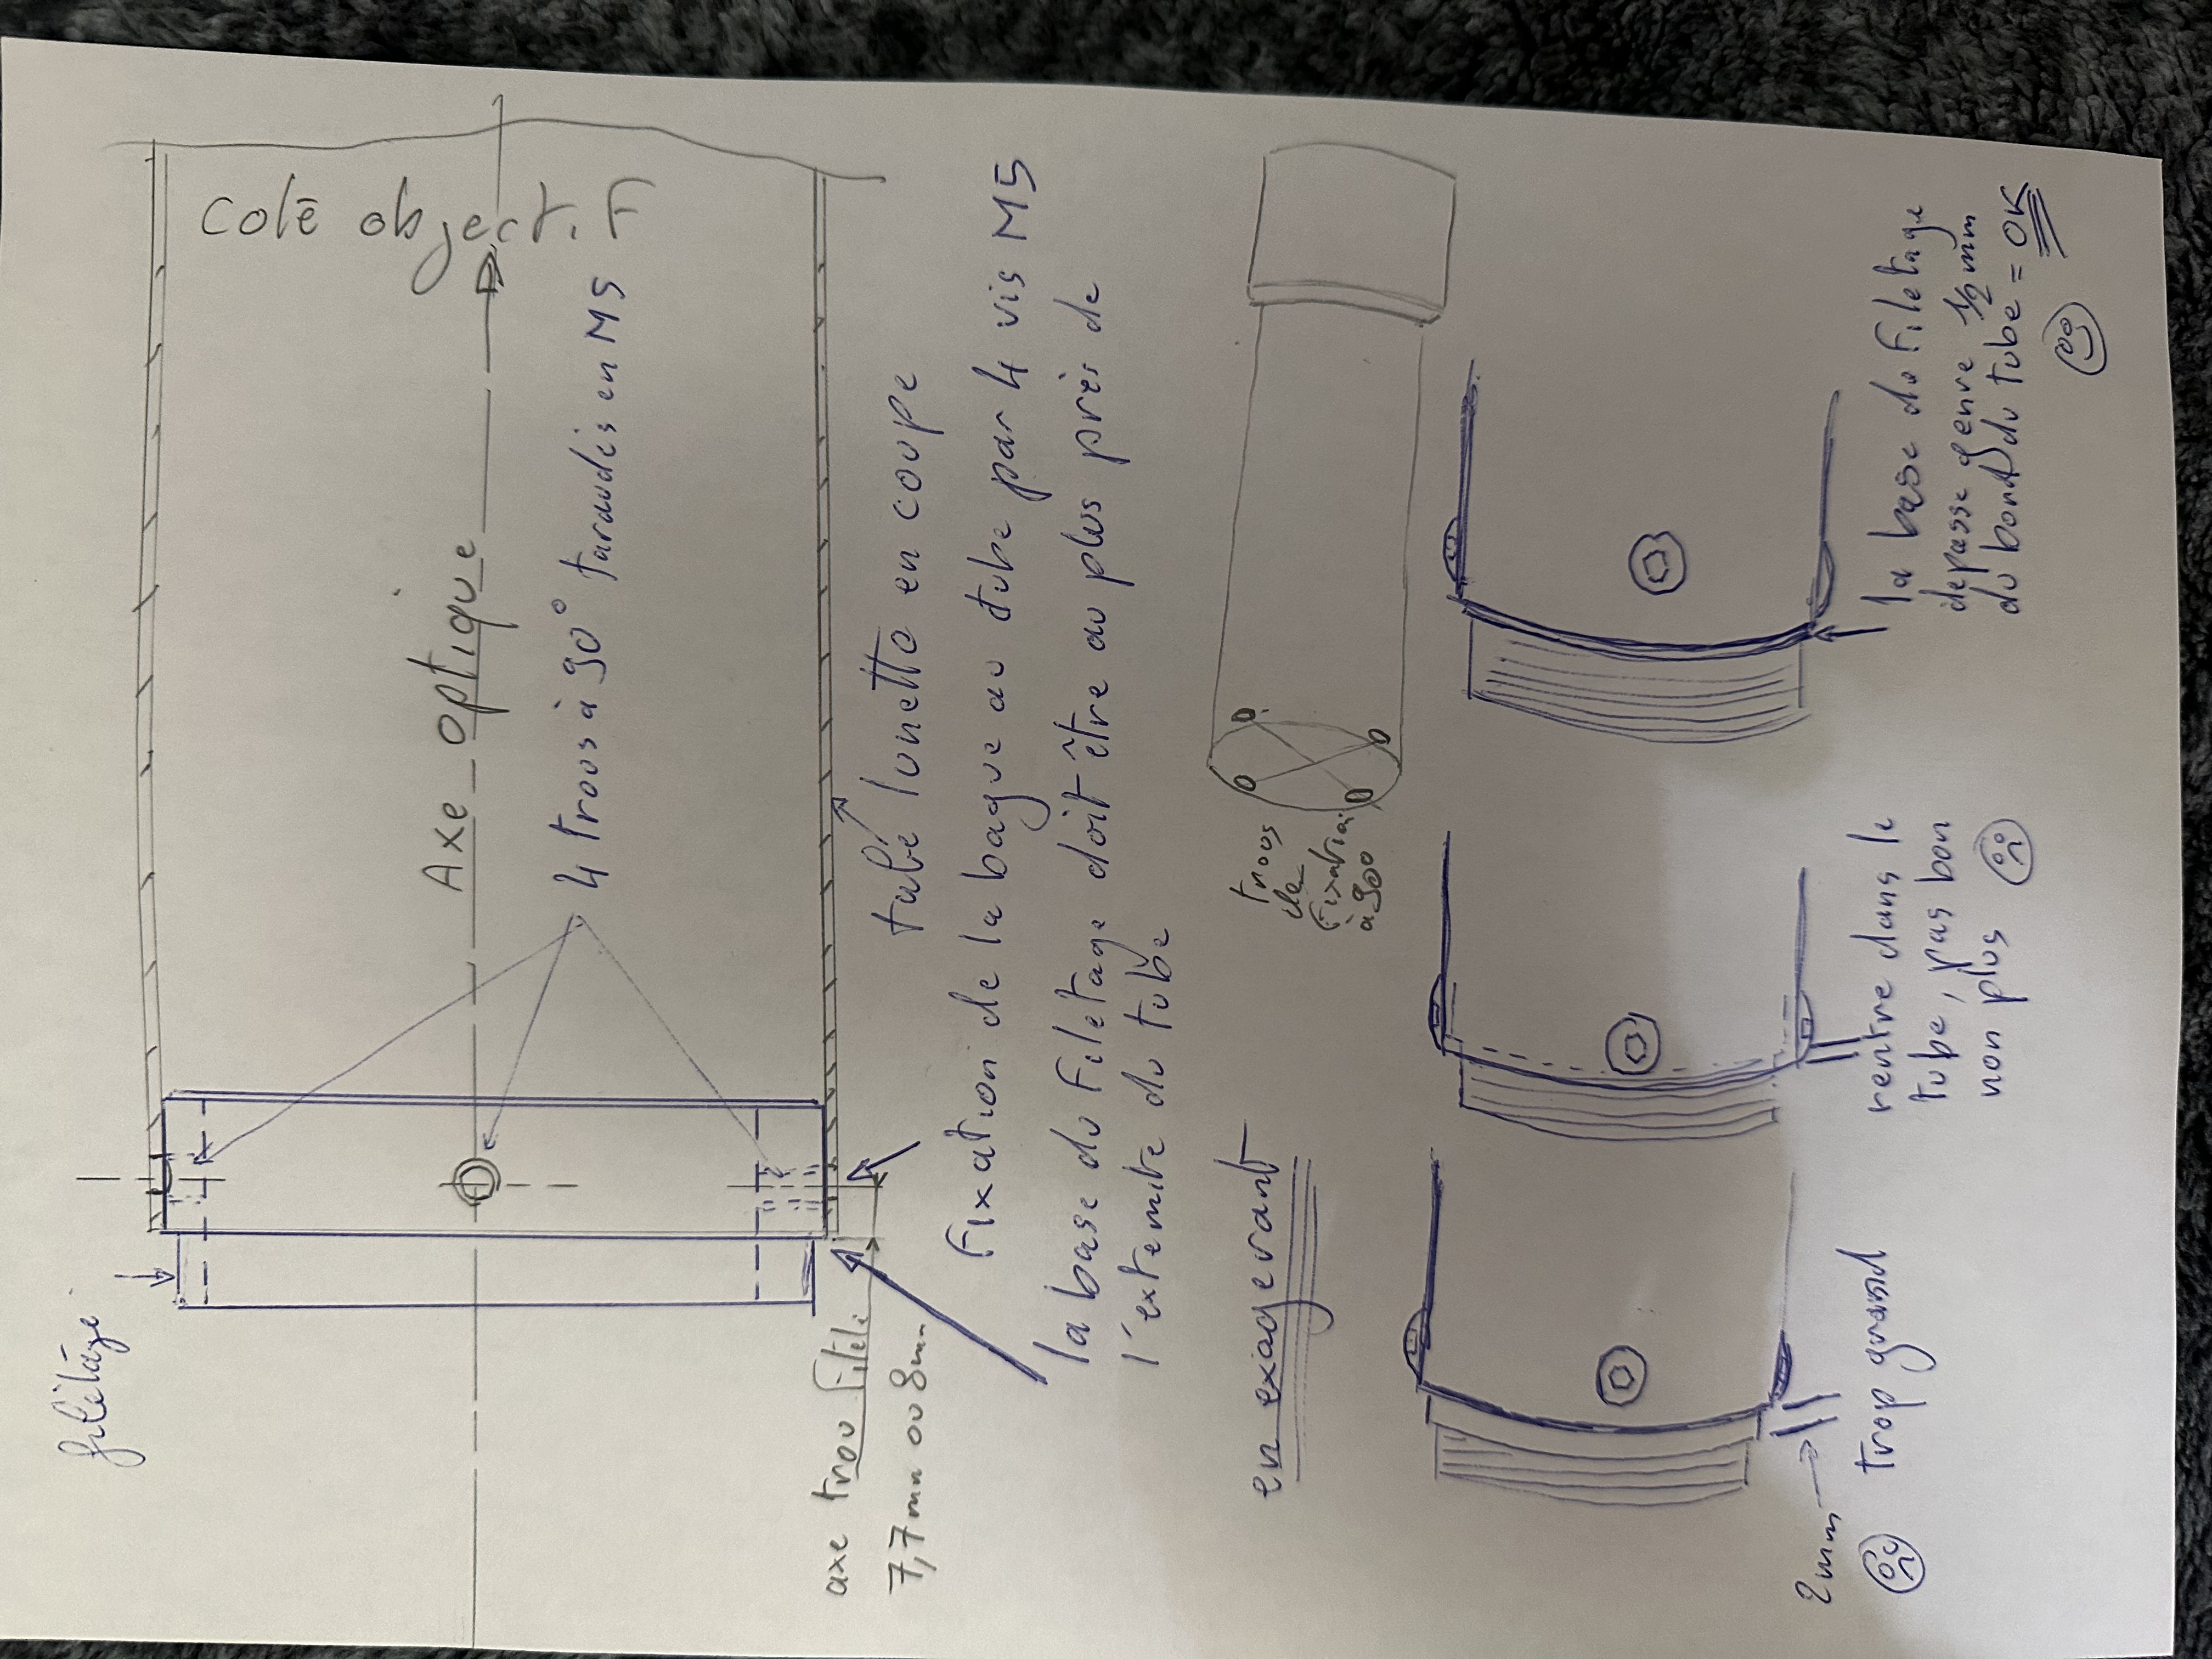 filetage
Coté objectif
Axe optique
4 trous à 90° taraudés en M5
axe trou fileté
7,7mm ou 8mm
tube lunette en coupe
Fixation de la bague au tube par 4 vis M5
la base du filetage doit être au plus près de
l'extremite du tube
trous
de
fixation
à 90
en exagerant
2mm
trop grand
rentre dans le
tube, pas bon
non plus
la base du filetage
depasse genre 1/2 mm
du bord du tube = OK